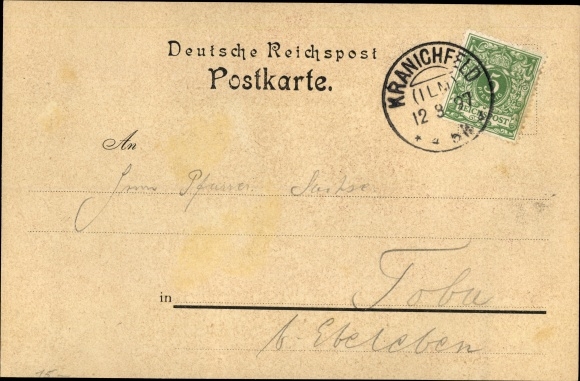 Deutsche Reichspost
Postkarte.
KRANICHFELD
(ILM)
12 8 97
5
REICHSPOST
An
Herrn Pfarrer
in Toba
b. Ebeleben
15-